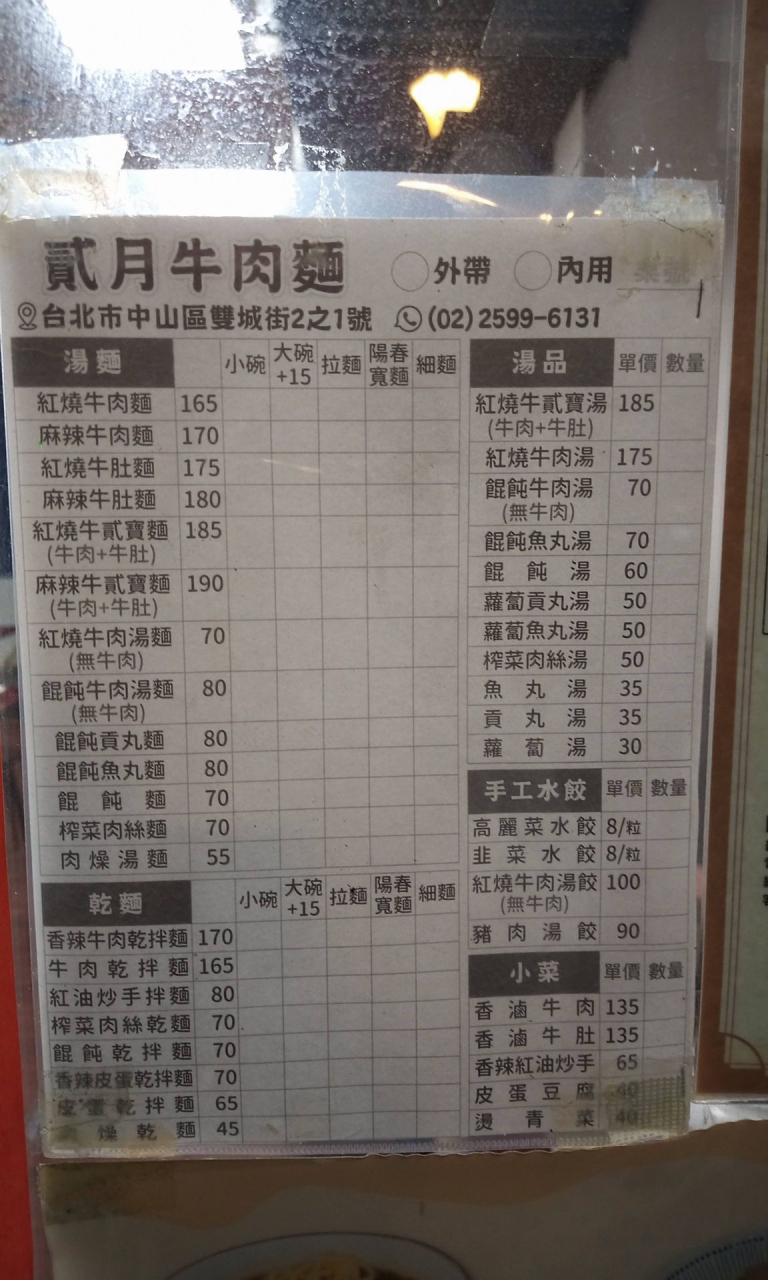 貳月牛肉麵 外帶 內用
台北市中山區雙城街2之1號 (02)2599-6131
湯麵 小碗 大碗+15 拉麵 陽春寬麵 細麵
紅燒牛肉麵 165
麻辣牛肉麵 170
紅燒牛肚麵 175
麻辣牛肚麵 180
紅燒牛貳寶麵 185
(牛肉+牛肚)
麻辣牛貳寶麵 190
(牛肉+牛肚)
紅燒牛肉湯麵 70
(無牛肉)
餛飩牛肉湯麵 80
(無牛肉)
餛飩貢丸麵 80
餛飩魚丸麵 80
餛飩麵 70
榨菜肉絲麵 70
肉燥湯麵 55
乾麵 小碗 大碗+15 拉麵 陽春寬麵 細麵
香辣牛肉乾拌麵 170
牛肉乾拌麵 165
紅油炒手拌麵 80
榨菜肉絲乾麵 70
餛飩乾拌麵 70
香辣皮蛋乾拌麵 70
皮蛋乾拌麵 65
燥乾麵 45
湯品 單價 數量
紅燒牛貳寶湯 185
(牛肉+牛肚)
紅燒牛肉湯 175
餛飩牛肉湯 70
(無牛肉)
餛飩魚丸湯 70
餛飩湯 60
蘿蔔貢丸湯 50
蘿蔔魚丸湯 50
榨菜肉絲湯 50
魚丸湯 35
貢丸湯 35
蘿蔔湯 30
手工水餃 單價 數量
高麗菜水餃 8/粒
韭菜水餃 8/粒
紅燒牛肉湯餃 100
(無牛肉)
豬肉湯餃 90
小菜 單價 數量
香滷牛肉 135
香滷牛肚 135
香辣紅油炒手 65
皮蛋豆腐 40
燙青菜 40